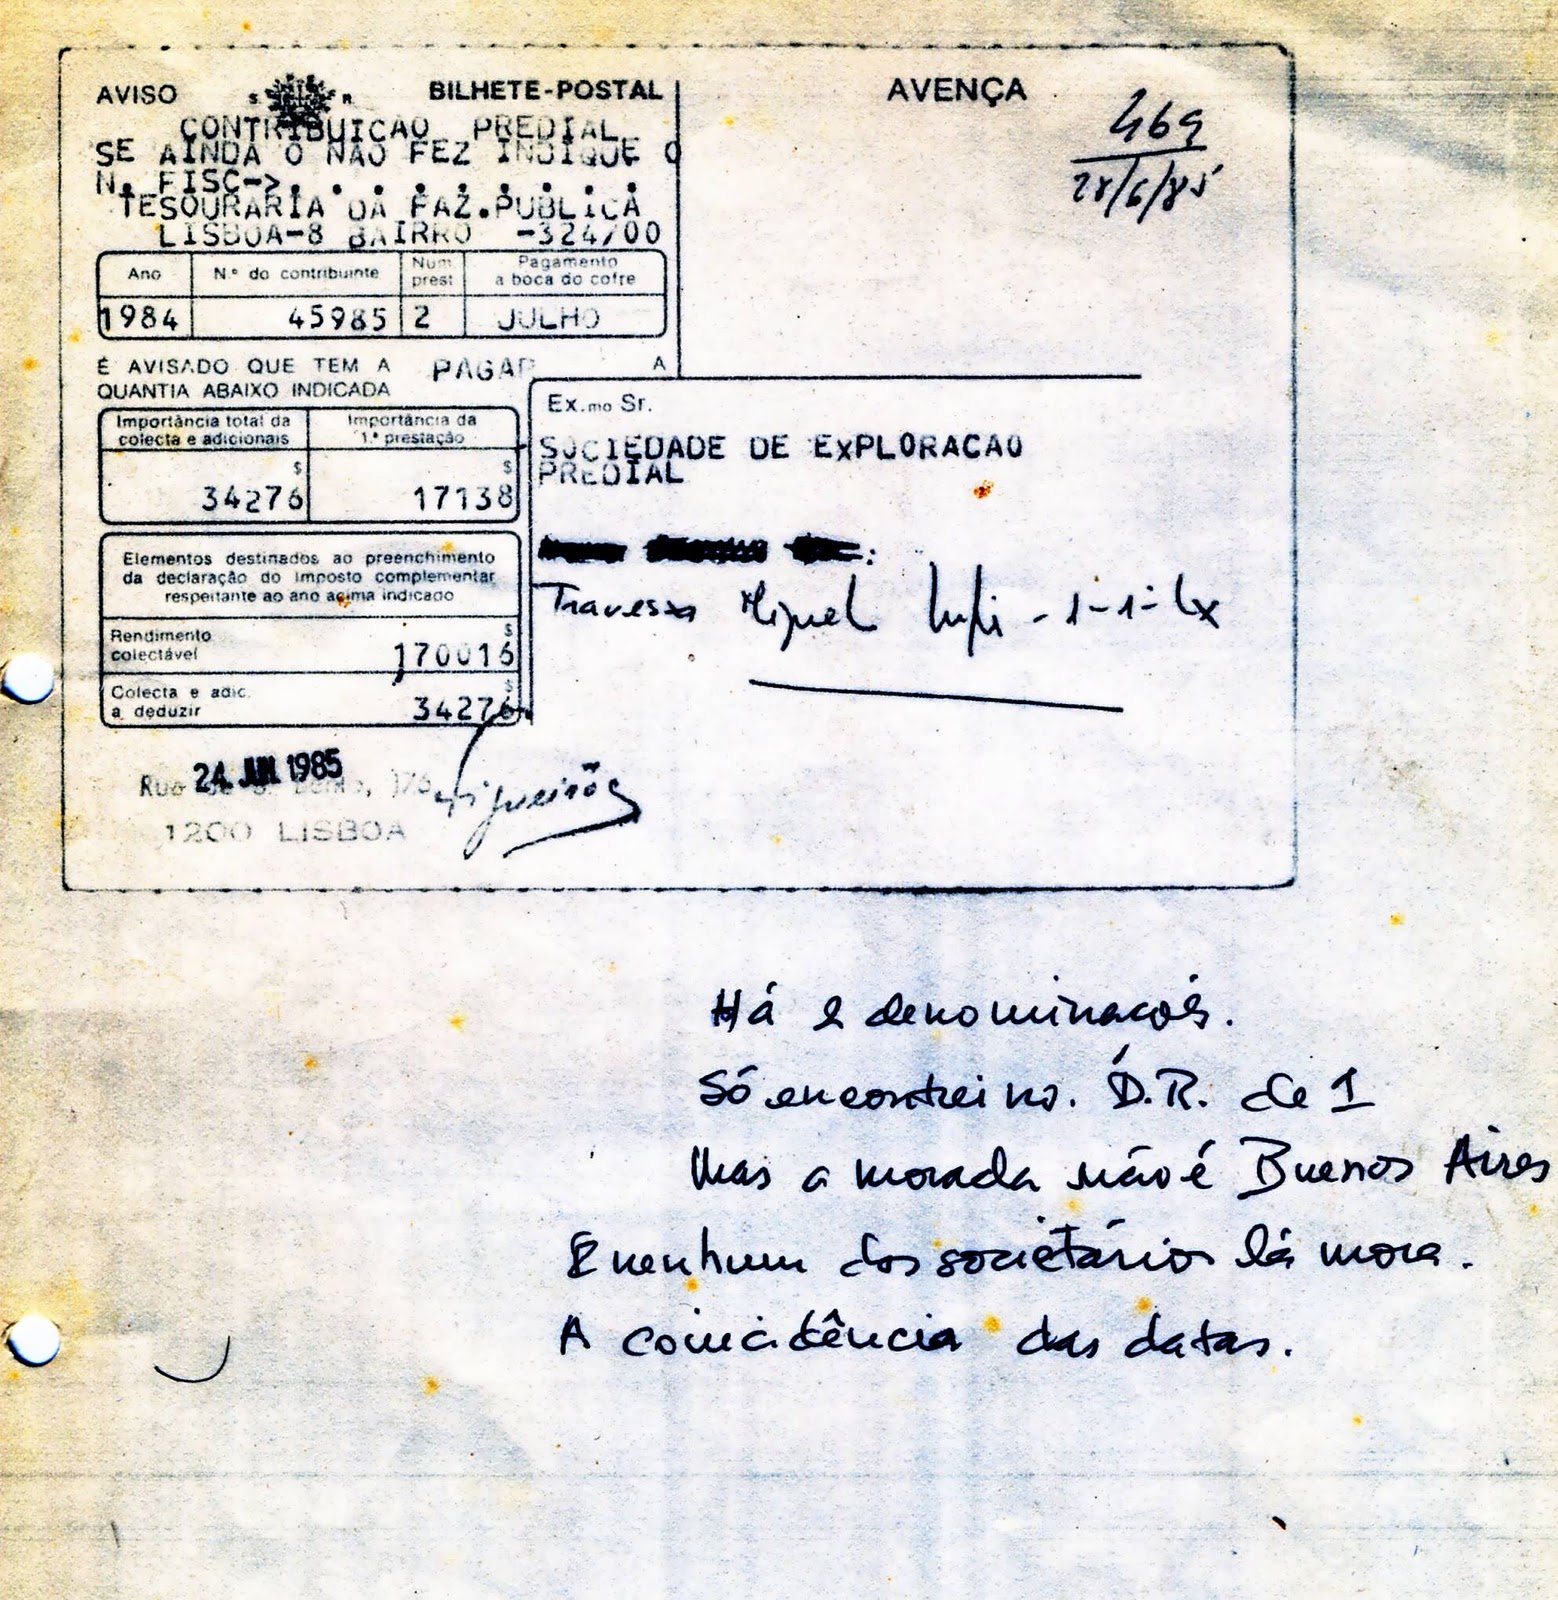 AVISO
S. R.
BILHETE-POSTAL
AVENÇA
469
28/6/85
CONTRIBUICAO PREDIAL
SE AINDA O NAO FEZ INDIQUE O
N. FISC->. . . . . . . . .
TESOURARIA DA FAZ.PUBLICA
LISBOA-8 BAIRRO -324/00
Ano
N.º do contribuinte
Num. prest
Pagamento
a boca do cofre
1984
45985
2
JULHO
É AVISADO QUE TEM A PAGAR A
QUANTIA ABAIXO INDICADA
Importância total da
colecta e adicionais
Importância da
1.ª prestação
$
34276
$
17138
Elementos destinados ao preenchimento
da declaração do imposto complementar
respeitante ao ano acima indicado
Rendimento
colectável
$
170016
Colecta e adic.
a deduzir
$
34276
Ex.mo Sr.
SOCIEDADE DE EXPLORACAO
PREDIAL
Travessa Miguel - 1-1-Lx
24. JUN. 1985
Rua
1200 LISBOA
Há 2 denominações.
Só encontrei no. D.R. de 1
Mas a morada não é Buenos Aires
E nenhum dos societários lá mora.
A coincidência das datas.